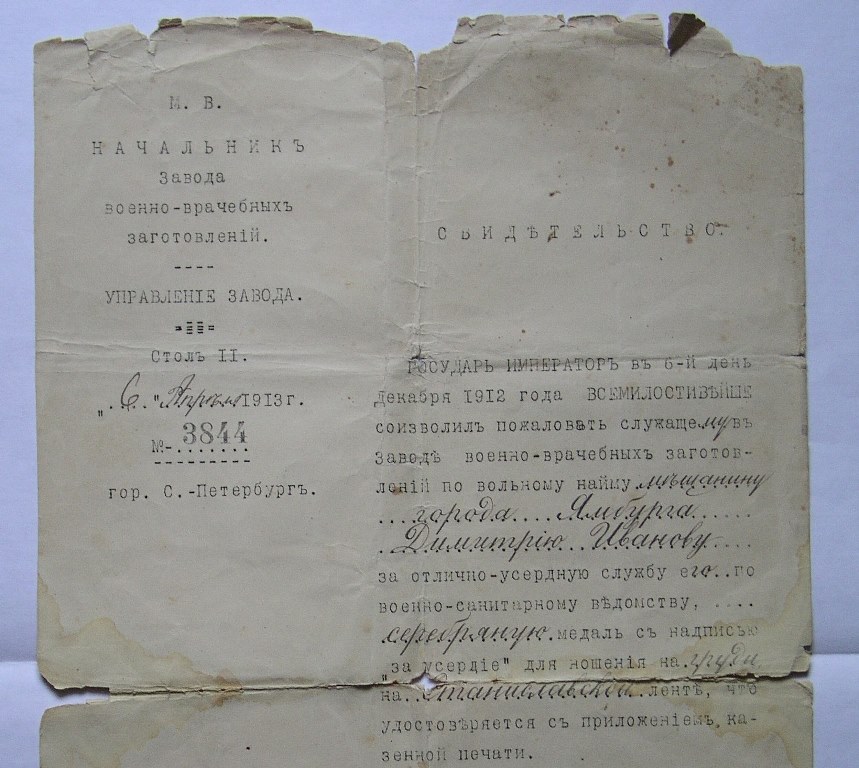 М. В.
НАЧАЛЬНИКЪ
Завода
военно-врачебныхъ
заготовленій.
УПРАВЛЕНІЕ ЗАВОДА.
Столъ II.
„.6.."Апрѣля 1913г.
№-3844
гор. С.-Петербургъ.
СВИДѢТЕЛЬСТВО.
ГОСУДАРЬ ИМПЕРАТОРЪ въ 6-й день
Декабря 1912 года ВСЕМИЛОСТИВѢЙШЕ
соизволилъ пожаловать служащему въ
Заводѣ военно-врачебныхъ заготов-
леній по вольному найму мѣщанину
...города....Ямбурга......
.Димитрію..Иванову....
за отлично-усердную службу его..по
военно-санитарному вѣдомству, ....
серебряную.медаль съ надписью
"за усердіе" для ношенія на груди
на..Станиславской.лентѣ, что
удостовѣряется съ приложеніемъ ка-
зенной печати.